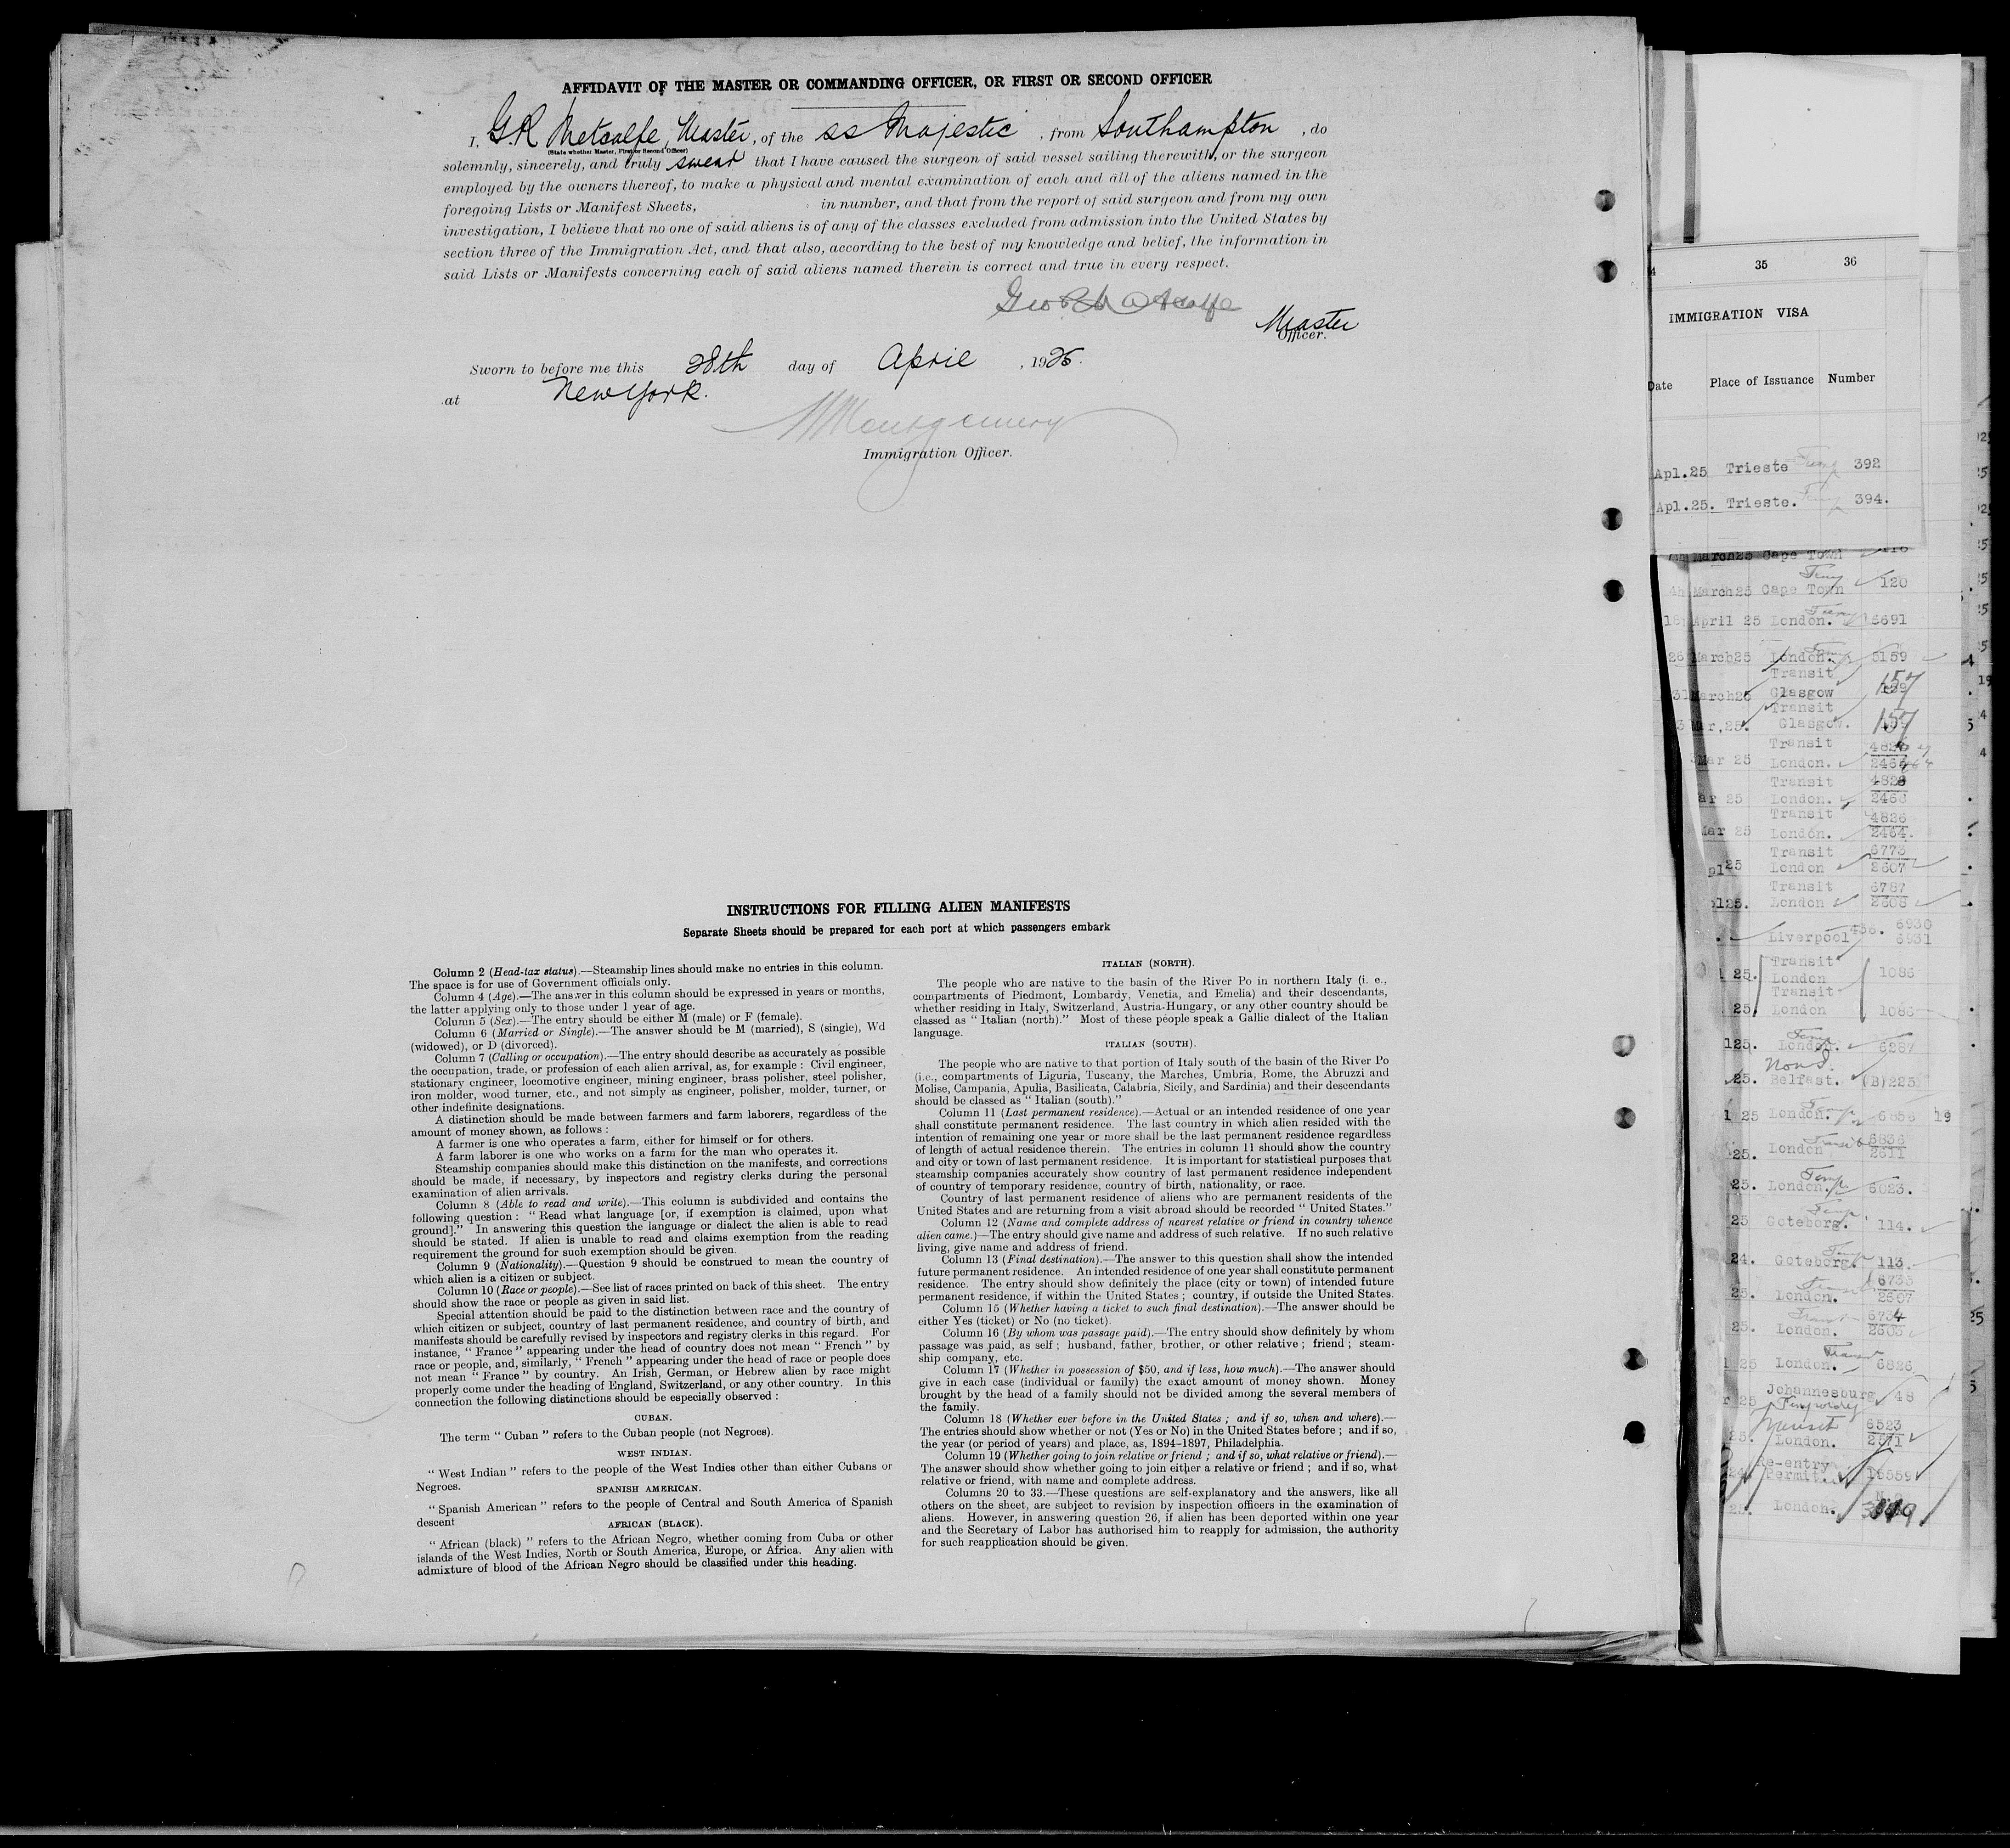 AFFIDAVIT OF THE MASTER OR COMMANDING OFFICER, OR FIRST OR SECOND OFFICER
I, G R Metcalfe, Master, of the ss Majestic, from Southampton, do
(State whether Master, First or Second Officer)
solemnly, sincerely, and truly swear that I have caused the surgeon of said vessel sailing therewith, or the surgeon
employed by the owners thereof, to make a physical and mental examination of each and all of the aliens named in the
foregoing Lists or Manifest Sheets, in number, and that from the report of said surgeon and from my own
investigation, I believe that no one of said aliens is of any of the classes excluded from admission into the United States by
section three of the Immigration Act, and that also, according to the best of my knowledge and belief, the information in
said Lists or Manifests concerning each of said aliens named therein is correct and true in every respect.
Geo R Metcalfe
Master
Officer.
Sworn to before me this 28th day of April, 1925.
at New York.
Montgomery
Immigration Officer.
INSTRUCTIONS FOR FILLING ALIEN MANIFESTS
Separate Sheets should be prepared for each port at which passengers embark
Column 2 (Head-tax status).—Steamship lines should make no entries in this column.
The space is for use of Government officials only.
Column 4 (Age).—The answer in this column should be expressed in years or months,
the latter applying only to those under 1 year of age.
Column 5 (Sex).—The entry should be either M (male) or F (female).
Column 6 (Married or Single).—The answer should be M (married), S (single), Wd
(widowed), or D (divorced).
Column 7 (Calling or occupation).—The entry should describe as accurately as possible
the occupation, trade, or profession of each alien arrival, as, for example : Civil engineer,
stationary engineer, locomotive engineer, mining engineer, brass polisher, steel polisher,
iron molder, wood turner, etc., and not simply as engineer, polisher, molder, turner, or
other indefinite designations.
A distinction should be made between farmers and farm laborers, regardless of the
amount of money shown, as follows :
A farmer is one who operates a farm, either for himself or for others.
A farm laborer is one who works on a farm for the man who operates it.
Steamship companies should make this distinction on the manifests, and corrections
should be made, if necessary, by inspectors and registry clerks during the personal
examination of alien arrivals.
Column 8 (Able to read and write).—This column is subdivided and contains the
following question : “ Read what language [or, if exemption is claimed, upon what
ground].” In answering this question the language or dialect the alien is able to read
should be stated. If alien is unable to read and claims exemption from the reading
requirement the ground for such exemption should be given.
Column 9 (Nationality).—Question 9 should be construed to mean the country of
which alien is a citizen or subject.
Column 10 (Race or people).—See list of races printed on back of this sheet. The entry
should show the race or people as given in said list.
Special attention should be paid to the distinction between race and the country of
which citizen or subject, country of last permanent residence, and country of birth, and
manifests should be carefully revised by inspectors and registry clerks in this regard. For
instance, “ France ” appearing under the head of country does not mean “ French ” by
race or people, and, similarly, “ French ” appearing under the head of race or people does
not mean “ France ” by country. An Irish, German, or Hebrew alien by race might
properly come under the heading of England, Switzerland, or any other country. In this
connection the following distinctions should be especially observed :
CUBAN.
The term “ Cuban ” refers to the Cuban people (not Negroes).
WEST INDIAN.
“ West Indian ” refers to the people of the West Indies other than either Cubans or
Negroes.
SPANISH AMERICAN.
“ Spanish American ” refers to the people of Central and South America of Spanish
descent
AFRICAN (BLACK).
“ African (black) ” refers to the African Negro, whether coming from Cuba or other
islands of the West Indies, North or South America, Europe, or Africa. Any alien with
admixture of blood of the African Negro should be classified under this heading.
ITALIAN (NORTH).
The people who are native to the basin of the River Po in northern Italy (i. e.,
compartments of Piedmont, Lombardy, Venetia, and Emelia) and their descendants,
whether residing in Italy, Switzerland, Austria-Hungary, or any other country should be
classed as “ Italian (north).” Most of these people speak a Gallic dialect of the Italian
language.
ITALIAN (SOUTH).
The people who are native to that portion of Italy south of the basin of the River Po
(i.e., compartments of Liguria, Tuscany, the Marches, Umbria, Rome, the Abruzzi and
Molise, Campania, Apulia, Basilicata, Calabria, Sicily, and Sardinia) and their descendants
should be classed as “ Italian (south).”
Column 11 (Last permanent residence).—Actual or an intended residence of one year
shall constitute permanent residence. The last country in which alien resided with the
intention of remaining one year or more shall be the last permanent residence regardless
of length of actual residence therein. The entries in column 11 should show the country
and city or town of last permanent residence. It is important for statistical purposes that
steamship companies accurately show country of last permanent residence independent
of country of temporary residence, country of birth, nationality, or race.
Country of last permanent residence of aliens who are permanent residents of the
United States and are returning from a visit abroad should be recorded “ United States.”
Column 12 (Name and complete address of nearest relative or friend in country whence
alien came.)—The entry should give name and address of such relative. If no such relative
living, give name and address of friend.
Column 13 (Final destination).—The answer to this question shall show the intended
future permanent residence. An intended residence of one year shall constitute permanent
residence. The entry should show definitely the place (city or town) of intended future
permanent residence, if within the United States ; country, if outside the United States.
Column 15 (Whether having a ticket to such final destination).—The answer should be
either Yes (ticket) or No (no ticket).
Column 16 (By whom was passage paid).—The entry should show definitely by whom
passage was paid, as self ; husband, father, brother, or other relative ; friend ; steam-
ship company, etc.
Column 17 (Whether in possession of $50, and if less, how much).—The answer should
give in each case (individual or family) the exact amount of money shown. Money
brought by the head of a family should not be divided among the several members of
the family.
Column 18 (Whether ever before in the United States ; and if so, when and where).—
The entries should show whether or not (Yes or No) in the United States before ; and if so,
the year (or period of years) and place, as, 1894-1897, Philadelphia.
Column 19 (Whether going to join relative or friend ; and if so, what relative or friend).—
The answer should show whether going to join either a relative or friend ; and if so, what
relative or friend, with name and complete address.
Columns 20 to 33.—These questions are self-explanatory and the answers, like all
others on the sheet, are subject to revision by inspection officers in the examination of
aliens. However, in answering question 26, if alien has been deported within one year
and the Secretary of Labor has authorised him to reapply for admission, the authority
for such reapplication should be given.
35 36
IMMIGRATION VISA
Date Place of Issuance Number
Apl.25 Trieste 392
Apl.25. Trieste. 394.
March25 Cape Town
March25 Cape Town 120
April 25 London. 6691
26 March25 London. 5159
Transit
March25 Glasgow 157
Transit
Mar,25. Glasgow. 157
Transit
Mar 25 London.
Transit 4828
ar 25 London. 2466
Transit 4826
Mar 25 London. 2464.
Transit 6773
pl25 London 2607
Transit 6787
pl25. London 2608
Liverpool 6930
6931
Transit
25. London 1086
Transit
25. London 1086
Temp
125. London. 6287
25. Belfast. (B)225
1 25 London. Temp 6856
25. London Transit 2611
25. London. Temp 6023.
25 Goteborg. Temp 114.
24. Goteborg. Temp 113.
25. London. 6733
2607
25. London. 6734
1 25 London. Transit 6826
Johannesburg 48
25 Temporary
Transit 6523
25. London.
Re-entry
Permit. 16559
25. London.